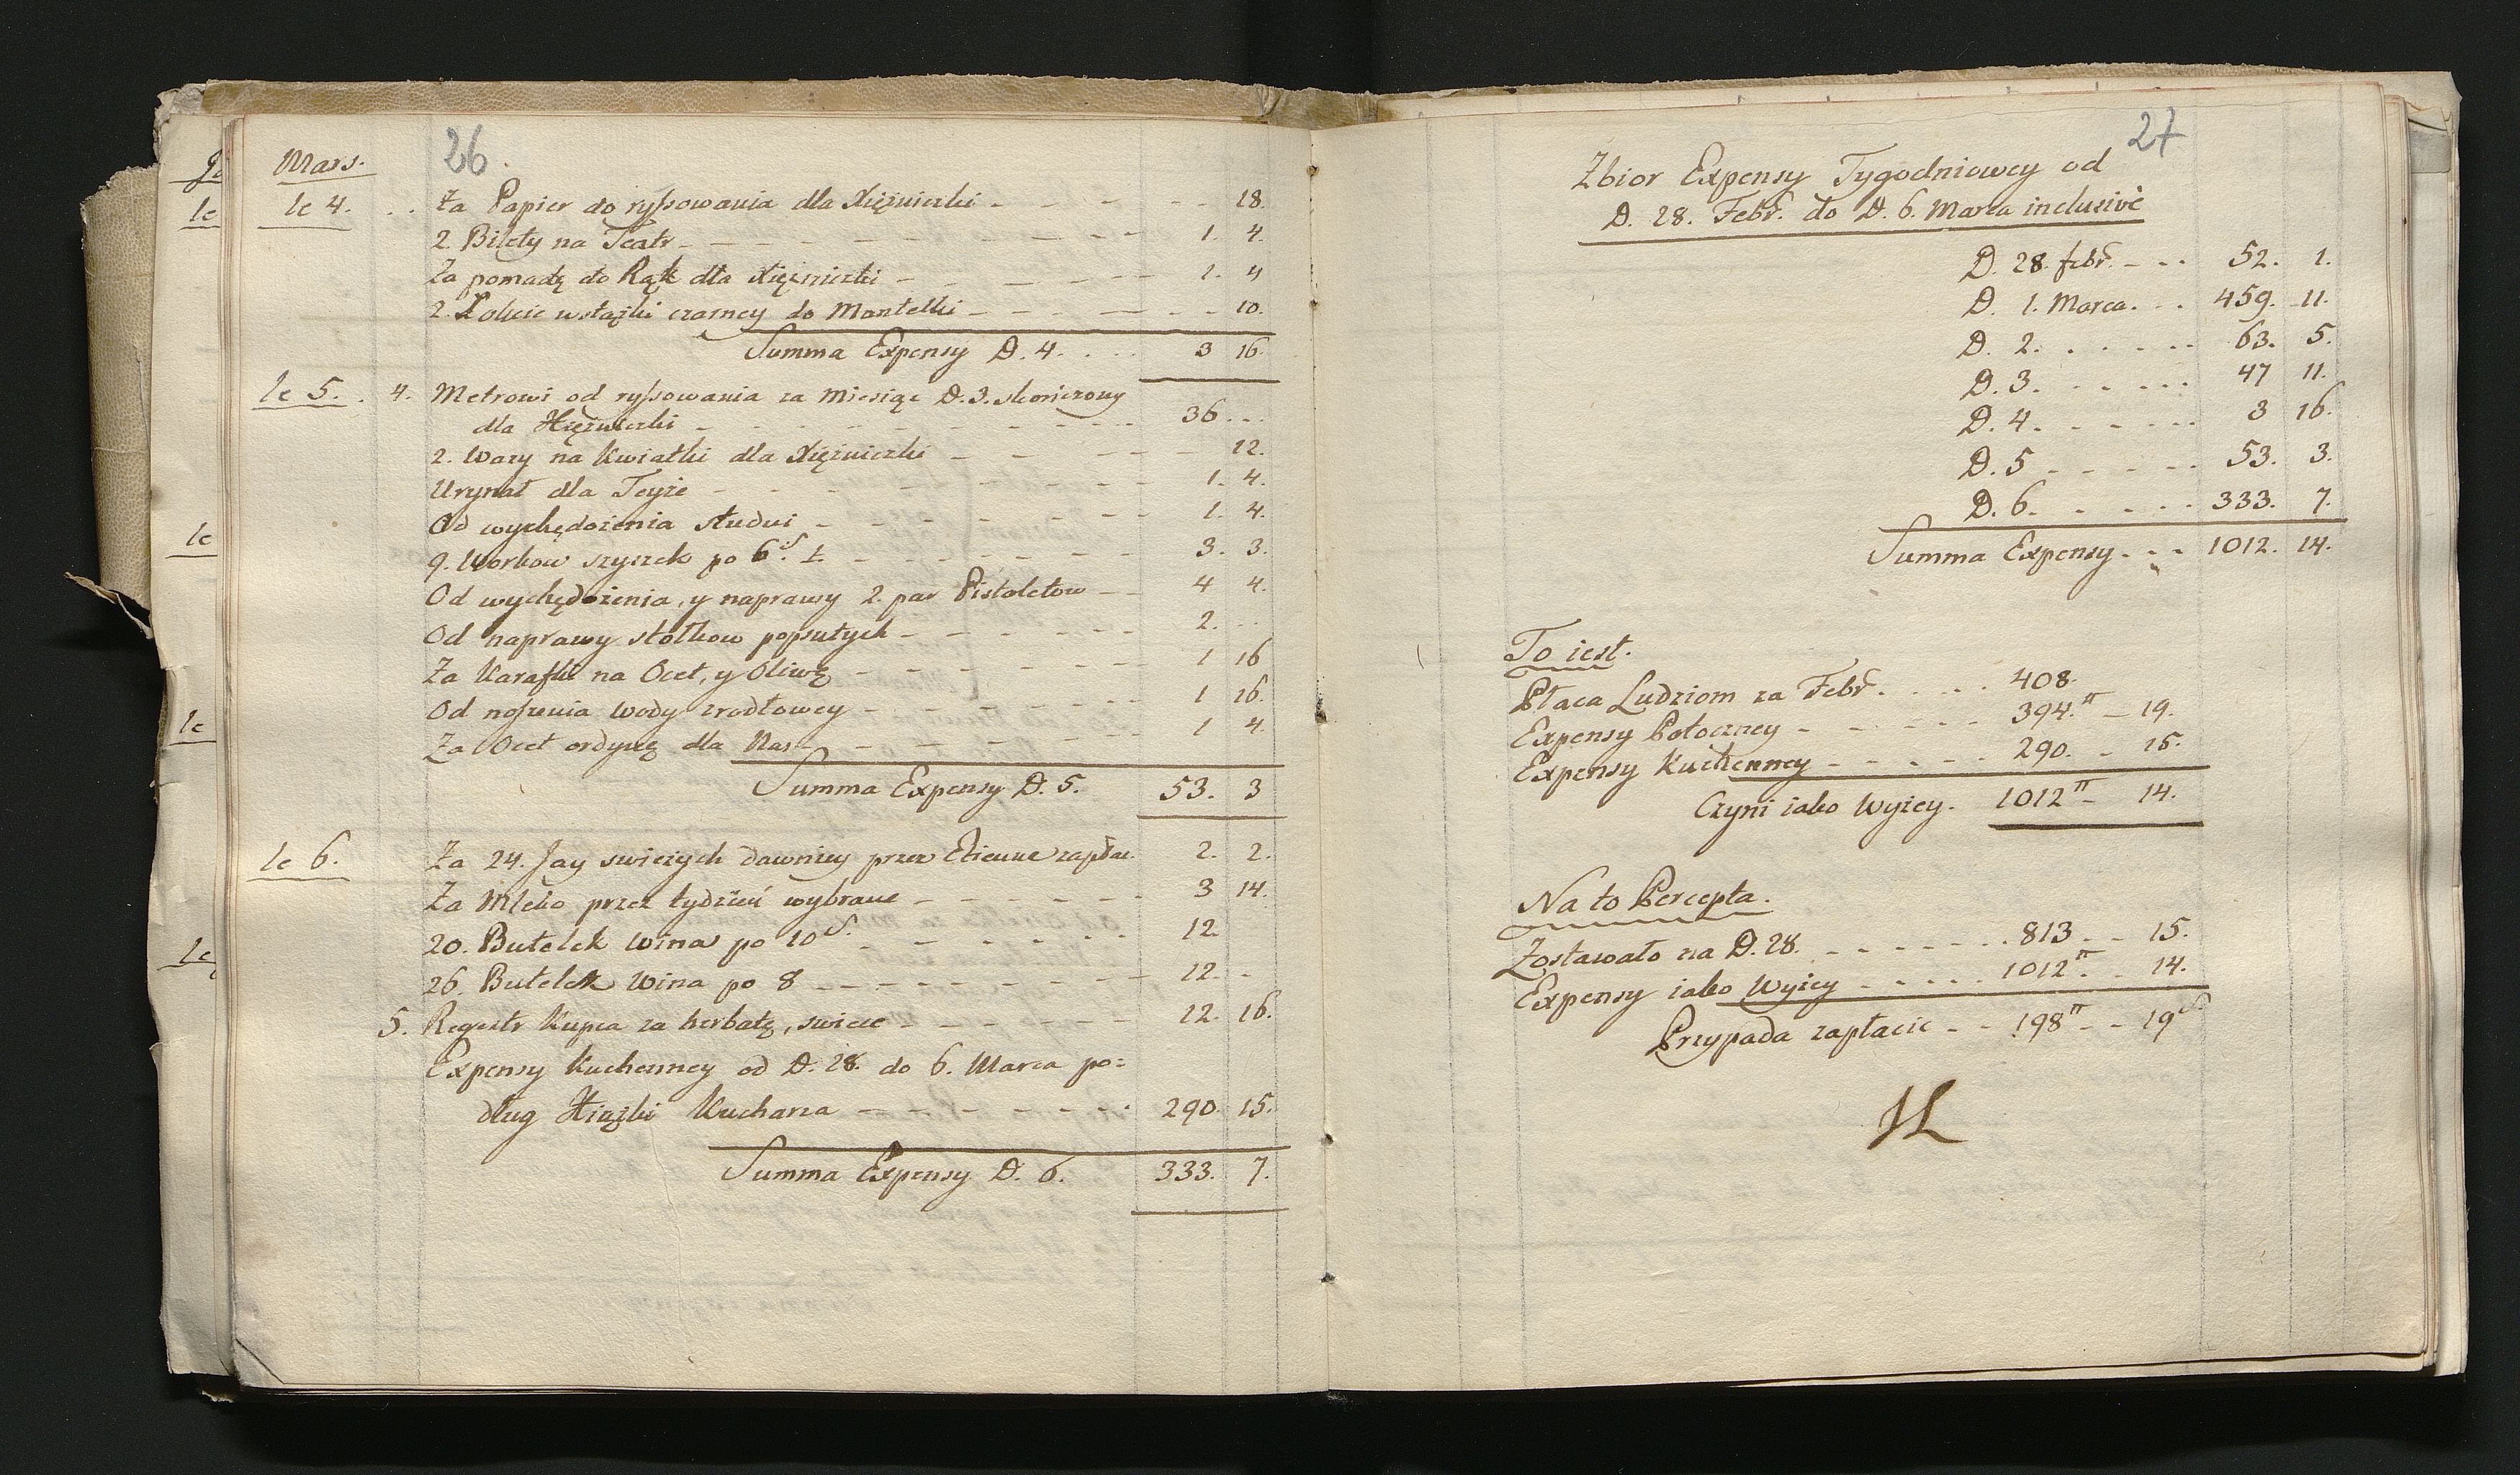 26.
Mars.
le 4. . . Za Papier do ryssowania dla Xięzniczki - - - - - 18.
2. Bilety na Teatr - - - - - - 1. 4.
Za pomadę do Rąk dla Xięzniczki - - - - - 1. 4
2. Łokcie wstążki czarney do Mantelki - - - - - - 10.
Summa Expensy D. 4. . . . 3 16.
le 5. . 4. Metrowi od ryssowania za Miesiąc D. 3. skończony
dla Xięzniczki - - - - - - 36 . . .
2. Wazy na Kwiatki dla Xięzniczki - - - - - 12.
Urynał dla Teyże - - - - - - 1. 4.
Od wychędożenia studni - - - - - - 1. 4.
9. Workow szyszek po 6.s - - - - - 3. 3.
Od wychędożenia, y naprawy 2. par Pistoletow - - 4 4.
Od naprawy stołkow popsutych - - - - - 2. - -
Za Karafki na Ocet, y Oliwę - - - - - 1 16
Od noszenia Wody zrodłowey - - - - - - 1 16.
Za Ocet ordynę dla Nas - - - - - 1 4.
Summa Expensy D. 5. 53. 3
le 6. Za 24. Jay swieżych dawniey przez Etienne zapłac. 2. 2.
Za Mleko przez tydzień wybrane - - - - - 3 14.
20. Butelek Wina po 10 s. - - - - - - 12.
26. Butelek Wina po 8 - - - - - - 12. -
5. Regestr Kupca za herbatę, swiece - - - - - 12. 16.
Expensy Kuchenney od D. 28. do 6. Marca po=
dług Xiążki Kucharza - - - - - - 290. 15.
Summa Expensy D. 6. 333. 7.
27
Zbior Expensy Tygodniowey od
D. 28. Febr. do D. 6. Marca inclusivè
D. 28. febr. - - - 52. 1.
D. 1. Marca. . . 459. 11.
D. 2. . . . . . 63. 5.
D. 3. . . . . . 47 11.
D. 4. . . . . . 3 16.
D. 5 - - - - - 53. 3.
D. 6. . . . . . 333. 7.
Summa Expensy . . . 1012. 14.
To iest.
Płaca Ludziom za Febr. . . . . 408.
Expensy Potoczney - - - - - 394.# - 19.
Expensy Kuchenney - - - - - 290. - 15.
Czyni iako Wyżey. 1012# - 14.
Na to Percepta.
Zostawało na D. 28. - - - - - - 813 - - 15.
Expensy iako Wyżey - - - - - 1012#. - 14.
Przypada zapłacić - - 198# - - 19 s.